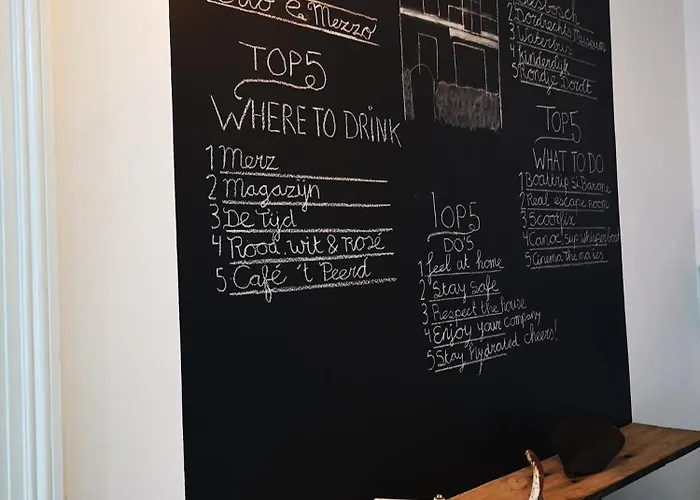 & Mezzo
TOP5
WHERE TO DRINK
1 Merz
2 Magazijn
3 De Tijd
4 Rood, wit & Rosé
5 Café 't Peerd
TOP5
DO'S
1 feel at home
2 Stay Safe
3 Respect the house
4 Enjoy your company
5 Stay Hydrated cheers!
2 Dordrechts Museum
3 Waterbus
4 Kinderdijk
5 Rondje Dordt
TOP5
WHAT TO DO
1 Boattrip
2 Real escape room
3 Scootfix
4 Canoe, sup whisperboat
5 Cinema The movies